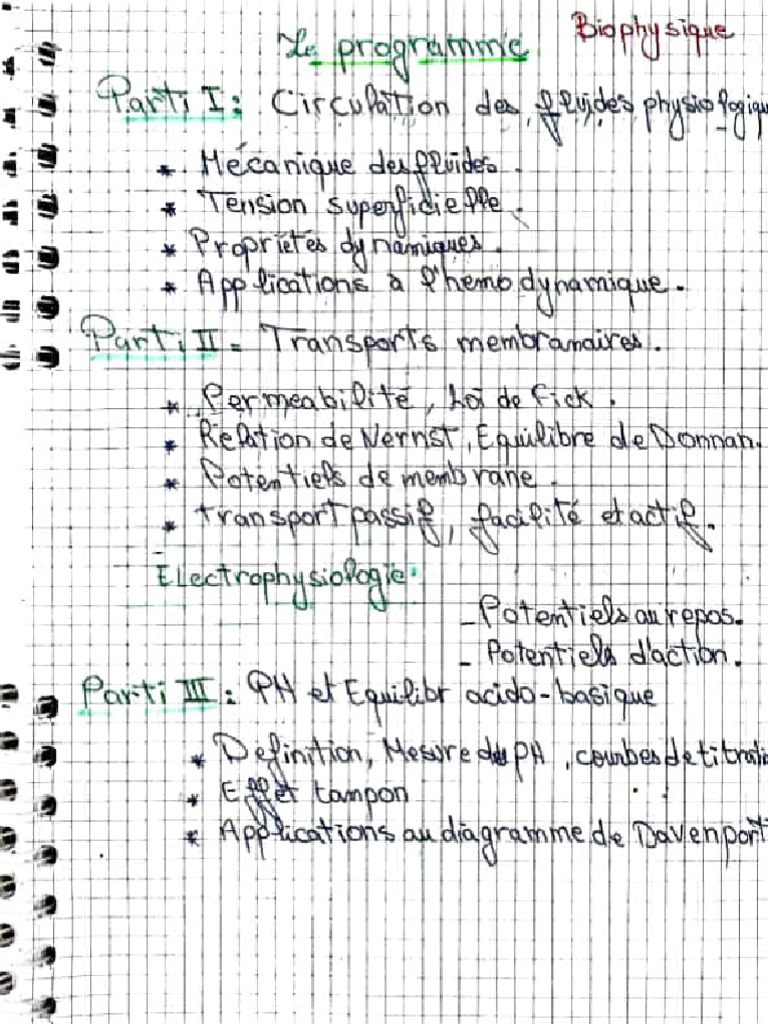 Biophysique
Le programme
Parti I : Circulation des fluides physiologiqu
* Mécanique des fluides.
* Tension superficielle.
* Propriétés dynamiques.
* Applications à l'hemodynamique.
Parti II = Transports membranaires.
* Permeabilité, Loi de Fick.
* Relation de Nernst, Equilibre de Donnan.
* Potentiels de membrane.
* transport passif, facilité et actif.
Electrophysiologie.
- Potentiels au repos.
- Potentiels d'action.
Parti III : PH et Equilibr acido-basique
* Definition, Mesure du PH, courbes de titratio
* Effet tampon
* Applications au diagramme de Davenport